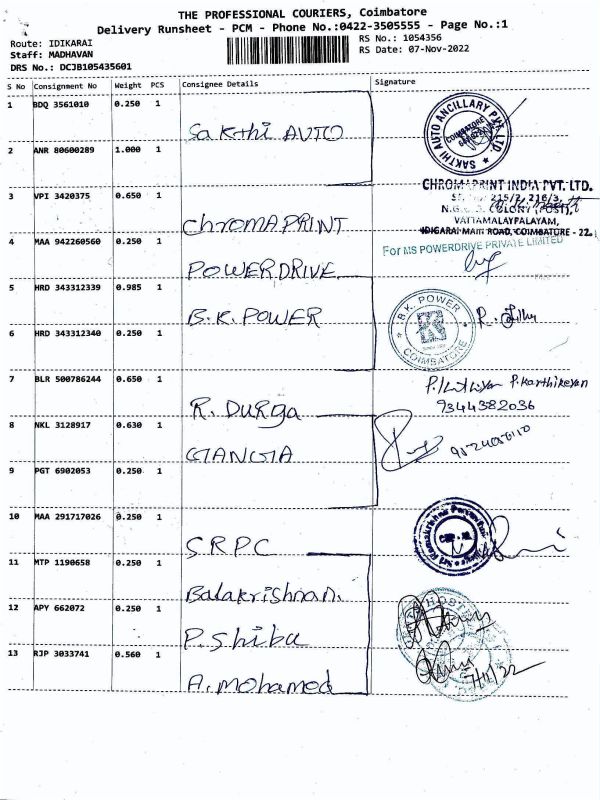 THE PROFESSIONAL COURIERS, Coimbatore
Delivery Runsheet - PCM - Phone No.:0422-3505555 - Page No.:1
Route: IDIKARAI
RS No.: 1054356
Staff: MADHAVAN
RS Date: 07-Nov-2022
DRS No.: DCJB105435601
S No Consignment No Weight PCS Consignee Details Signature
1 BDQ 3561010 0.250 1
Sakthi AUTO
SAKTHI AUTO ANCILLARY PVT. LTD.
COIMBATORE
2 ANR 80600289 1.000 1
3 VPI 3420375 0.650 1
ChromAPRINT
CHROMAPRINT INDIA PVT. LTD.
215/2, 216/3,
COLONY (POST),
VATTAMALAYPALAYAM,
IDIGARAI MAIN ROAD, COIMBATORE - 22.
4 MAA 942260560 0.250 1
POWERDRIVE
For MS POWERDRIVE PRIVATE LIMITED
5 HRD 343312339 0.985 1
B.K. POWER
B.K. POWER
K
COIMBATORE
6 HRD 343312340 0.250 1
7 BLR 500786244 0.650 1
R. Durga
P. Karthikeyan
9344382036
8 NKL 3128917 0.630 1
GANGA
9 PGT 6902053 0.250 1
10 MAA 291717026 0.250 1
SRPC
11 MTP 1190658 0.250 1
Balakrishnan.
12 APY 662072 0.250 1
P. Shibu
13 RJP 3033741 0.560 1
A. mohamed
7/11/22